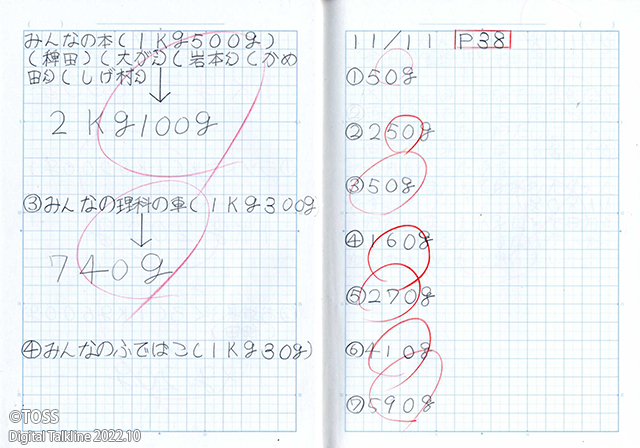 みんなの本(1Kg500g)
(種田)(大がき)(岩本)(かめ
田)(しげ村)
2Kg100g
③みんなの理科の車(1Kg300g)
740g
④みんなのふではこ(1Kg30g)
11/11 P38
①50g
②250g
③50g
④160g
⑤270g
⑥410g
⑦590g
©TOSS
Digital Talkline 2022.10